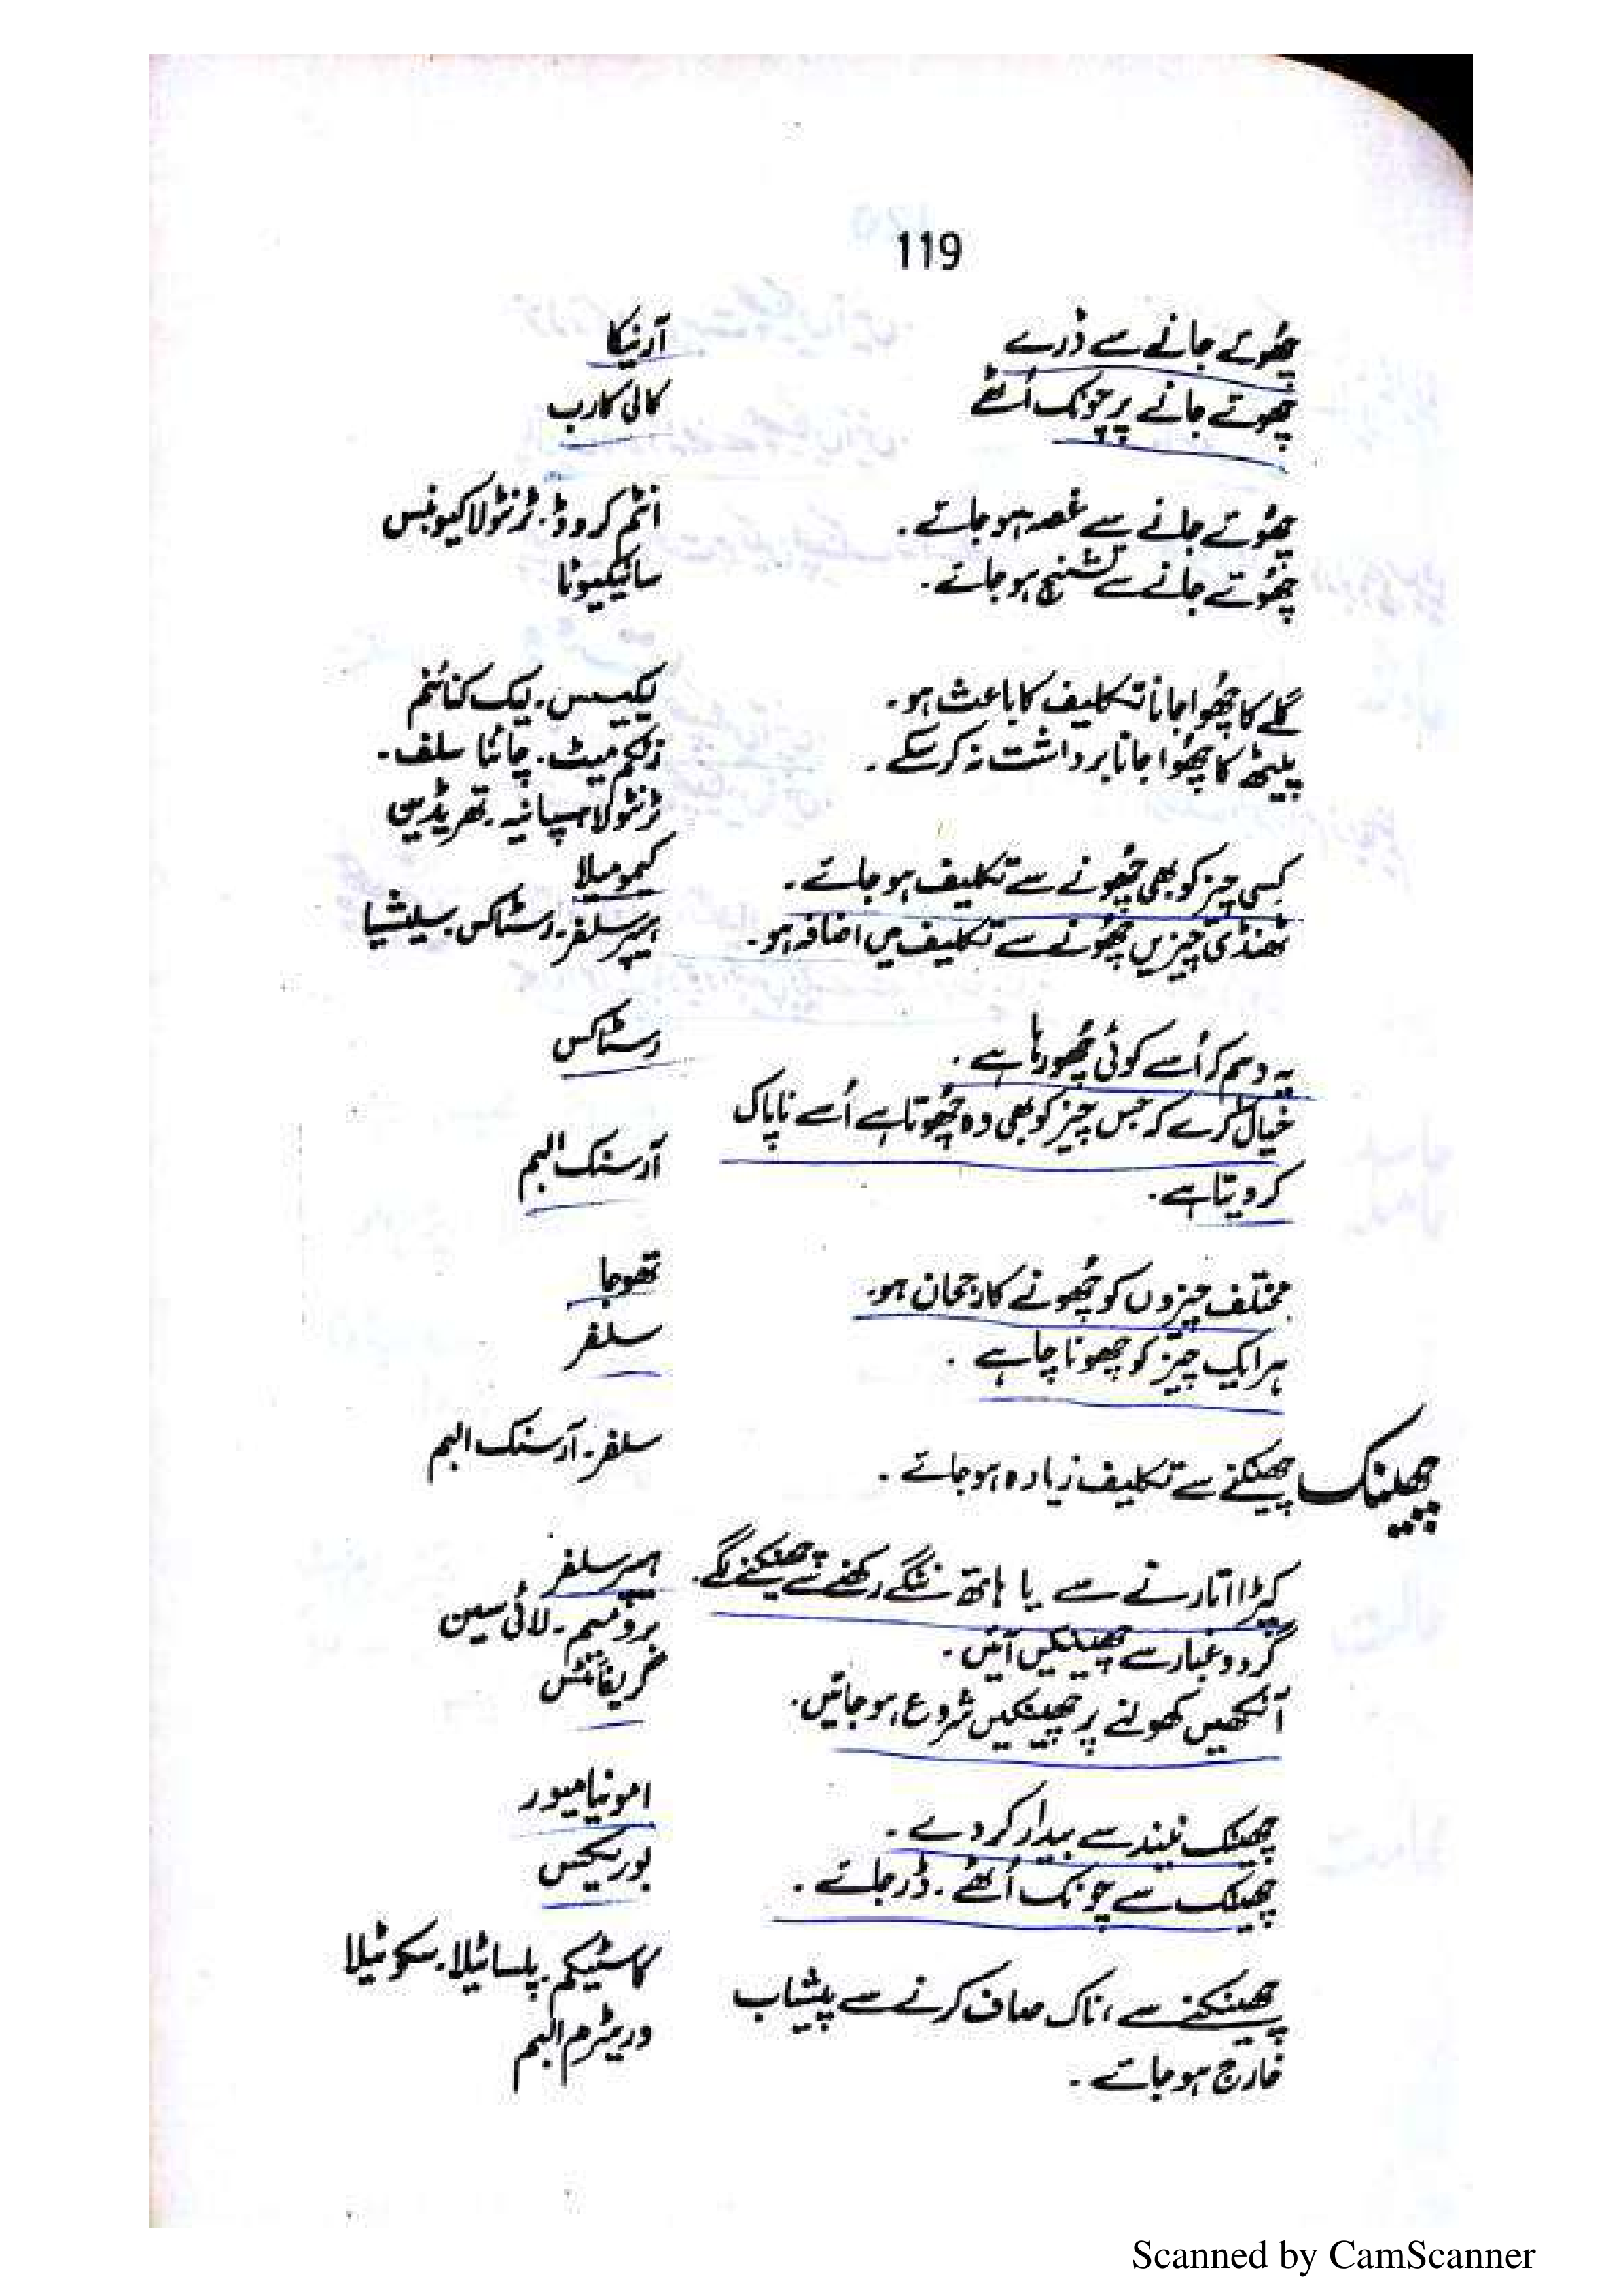 119
چھُوتے جانے سے ڈرے آرنیکا
چھُوتے جانے پر چونک اُٹھے کالی کارب
چھُوتے جانے سے غصہ ہو جاتے۔ انٹم کروڈ۔ ٹرنٹولا کیوبنس
چھُوتے جانے سے تشنج ہو جاتے۔ سائیکیوٹا
گلے کا چھُوا جانا تکلیف کا باعث ہو۔ لیکیسس۔ لیک کنائنم
پیٹھ کا چھُوا جانا برداشت نہ کر سکے۔ زنکم میٹ۔ چائنا سلف۔
ٹرنٹولا ہسپانیہ۔ تھریڈین
کسی چیز کو بھی چھُونے سے تکلیف ہو جاتے۔ کیمومیلا
ٹھنڈی چیزیں چھُونے سے تکلیف میں اضافہ ہو۔ ہیپر سلفر۔ رسٹاکس۔ سیلشیا
یہ وہم کہ اُسے کوئی چھُو رہا ہے۔ رسٹاکس
خیال کرے کہ جس چیز کو بھی وہ چھُوتا ہے اُسے ناپاک
کر دیتا ہے۔ آرسنک البم
مختلف چیزوں کو چھُونے کا رجحان ہو۔ تھوجا
ہر ایک چیز کو چھونا چاہے۔ سلفر
چھینک چھینکنے سے تکلیف زیادہ ہو جاتے۔ سلفر۔ آرسنک البم
کپڑا اتارنے سے یا ہاتھ ننگے رکھنے سے چھینکنے لگے۔ ہیپر سلفر
گرد و غبار سے چھینکیں آئیں۔ برومیم۔ لائی سین
آنکھیں کھولنے پر چھینکیں شروع ہو جائیں۔ گریفائٹس
چھینک نیند سے بیدار کر دے۔ امونیا میور
چھینک سے چونک اُٹھے۔ ڈر جاتے۔ بوریکس
چھینکنے سے، ناک صاف کرنے سے پیشاب کاسٹیکم۔ پلساٹیلا۔ سکوئیلا
خارج ہو جاتے۔ وریٹرم البم
Scanned by CamScanner